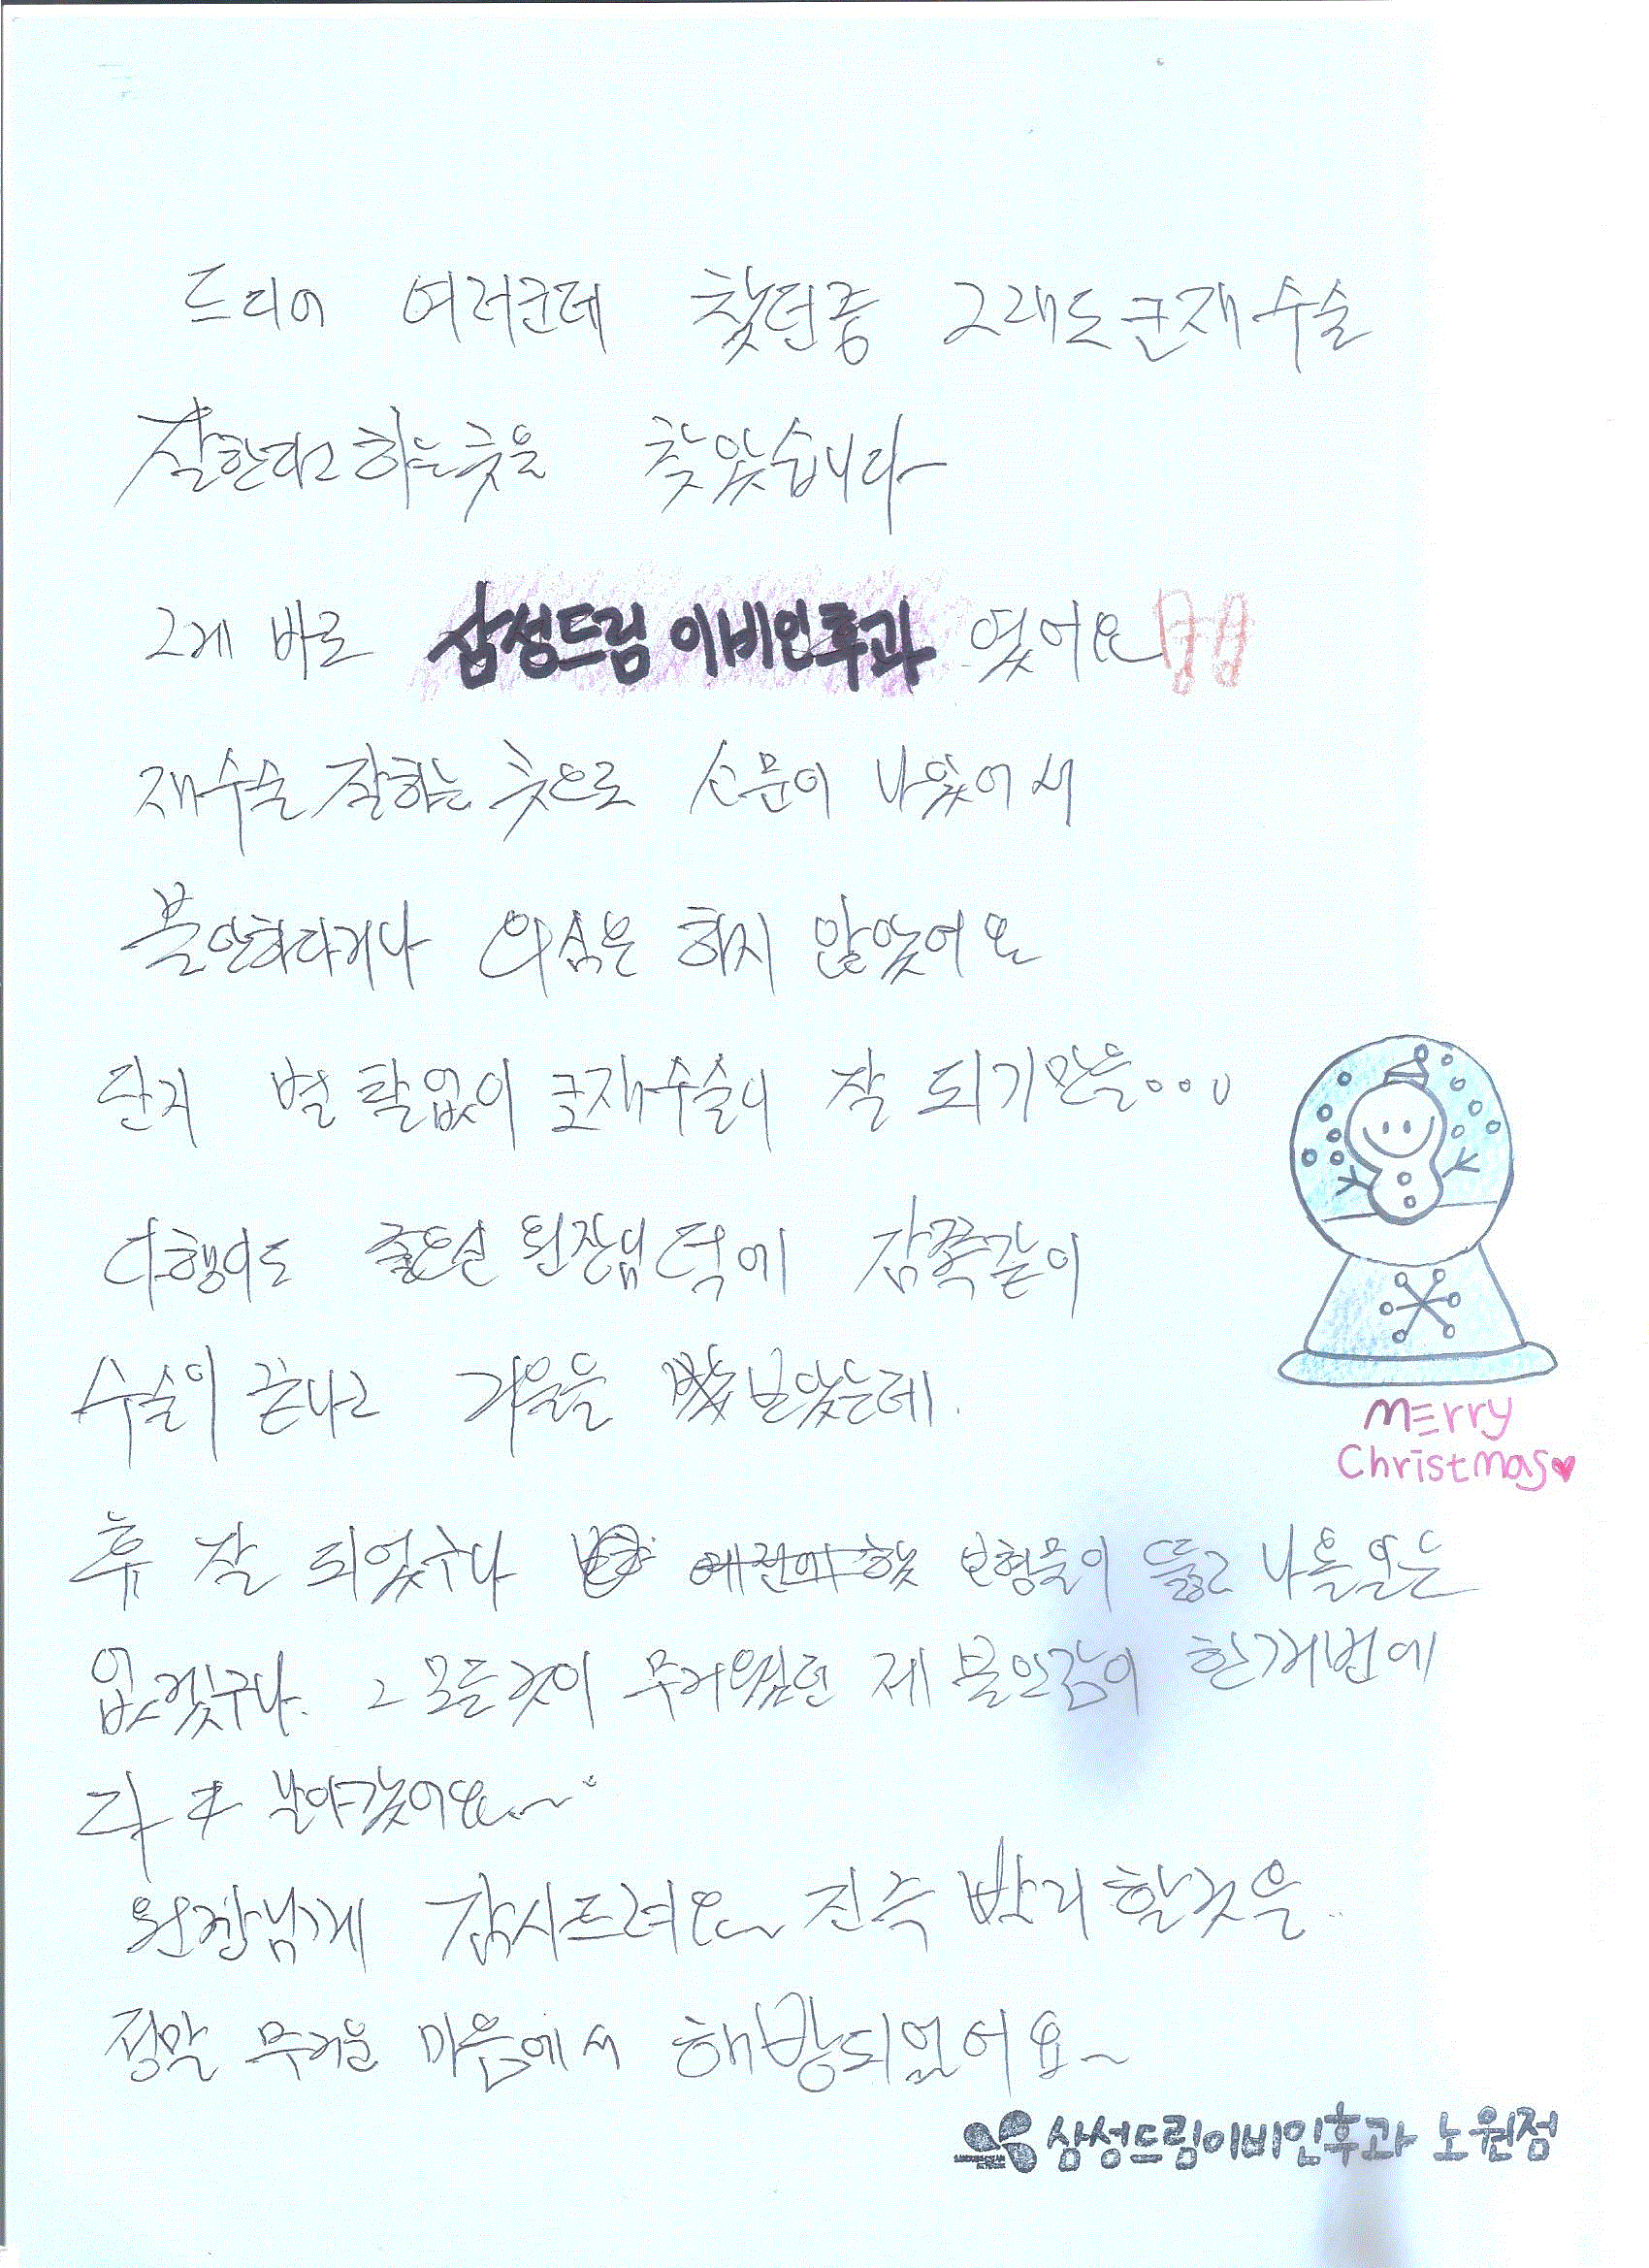 드디어 여러군데 찾던중 그래도 코재수술
잘한다고 하는곳을 찾았습니다
그게 바로 삼성드림 이비인후과 였어요!!
재수술 잘하는 곳으로 소문이 나있어서
불안하다거나 의심은 하지 않았어요
단지 별 탈없이 코재수술이 잘 되기만을...
다행이도 원장님 덕에 감쪽같이
수술이 끝나고 거울을 보았는데.
후 잘 되었구나 예전에 했 보형물이 뚫고 나올일은
없겠구나. 그 모든것이 무거웠던 제 불안감이 한꺼번에
다 날아갔어요~
원장님께 감사드려요~ 진즉 빨리 할것을..
정말 무거운 마음에서 해방되었어요~
Merry
Christmas♥
삼성드림이비인후과 노원점